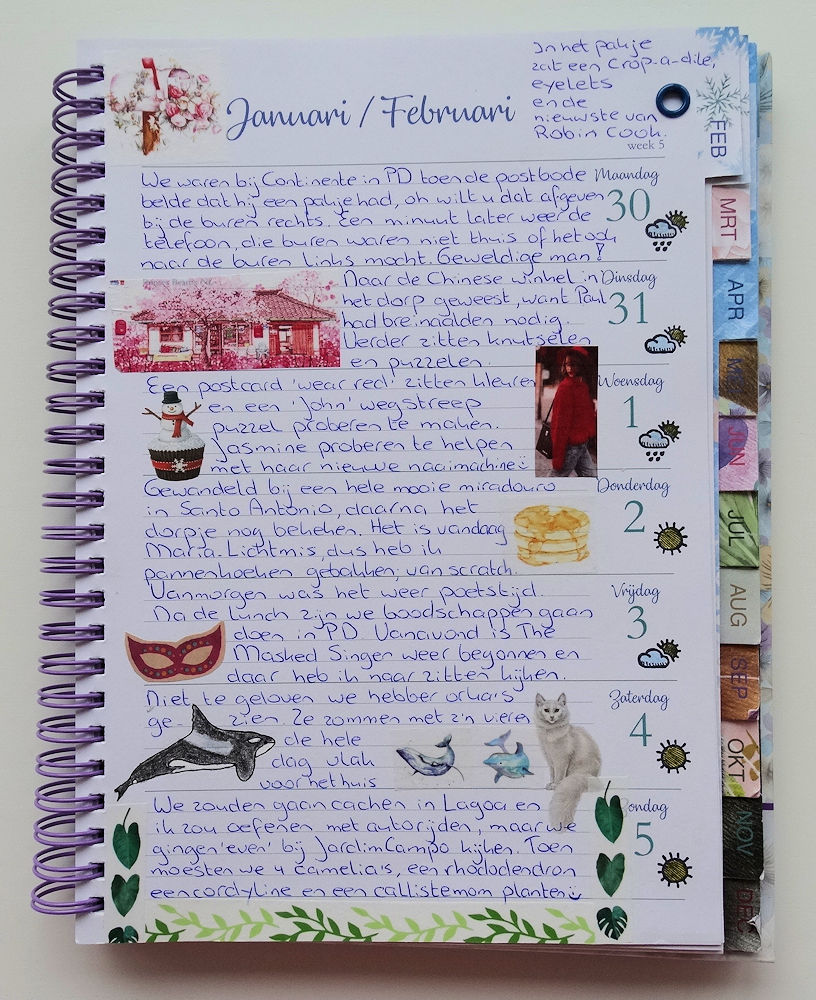 In het pakje
zat een Crop-a-dile,
eyelets
en de
nieuwste van
Robin Cook.
Januari / Februari
week 5
We waren bij Continente in PD toen de postbode
belde dat hij een pakje had, oh wilt u dat afgeven
bij de buren rechts. Een minuut later weer de
telefoon, die buren waren niet thuis of het ook
naar de buren links mocht. Geweldige man!
Maandag
30
Naar de Chinese winkel in
het dorp geweest, want Paul
had breinaalden nodig.
Verder zitten knutselen
en puzzelen.
Dinsdag
31
Een postcard 'wear red' zitten kleuren
en een 'John' wegstreep
puzzel proberen te maken.
Jasmine proberen te helpen
met haar nieuwe naaimachine
Woensdag
1
Gewandeld bij een hele mooie miradouro
in Santo Antonio, daarna het
dorpje nog bekeken. Het is vandaag
Maria-Lichtmis, dus heb ik
pannenkoeken gebakken, van scratch.
Donderdag
2
Vanmorgen was het weer poetstijd.
Na de lunch zijn we boodschappen gaan
doen in PD. Vanavond is The
Masked Singer weer begonnen en
daar heb ik naar zitten kijken.
Vrijdag
3
Niet te geloven we hebben orka's
ge zien. Ze zommen met z'n vieren
de hele
dag vlak
voor het huis
Zaterdag
4
We zouden gaan cachen in Lagoa en
ik zou oefenen met autorijden, maar we
gingen 'even' bij Jardim Campo kijken. Toen
moesten we 4 camelia's, een rhododendron
een cordyline en een callistemom planten
Zondag
5
FEB
MRT
APR
MEI
JUN
JUL
AUG
SEP
OKT
NOV
DEC